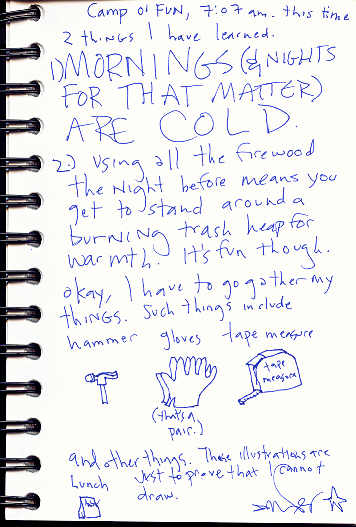 Camp o' FUN, 7:07 am. this time
2 things I have learned.
1) MORNINGS (& NIGHTS
FOR THAT MATTER)
ARE COLD.
2.) Using all the firewood
the Night before means you
get to stand around a
burning trash heap for
warmth. It's fun though.
okay, I have to go gather my
things. Such things include
hammer gloves tape measure
tape
measure
(that's a
pair.)
and other things. These illustrations are
Lunch Just to prove that I cannot
draw.